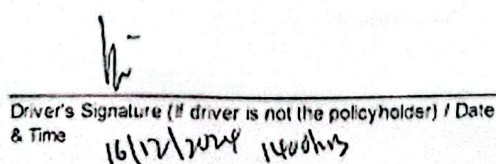 Driver's Signature (If driver is not the policyholder) / Date
& Time 16/12/2024 1400hrs